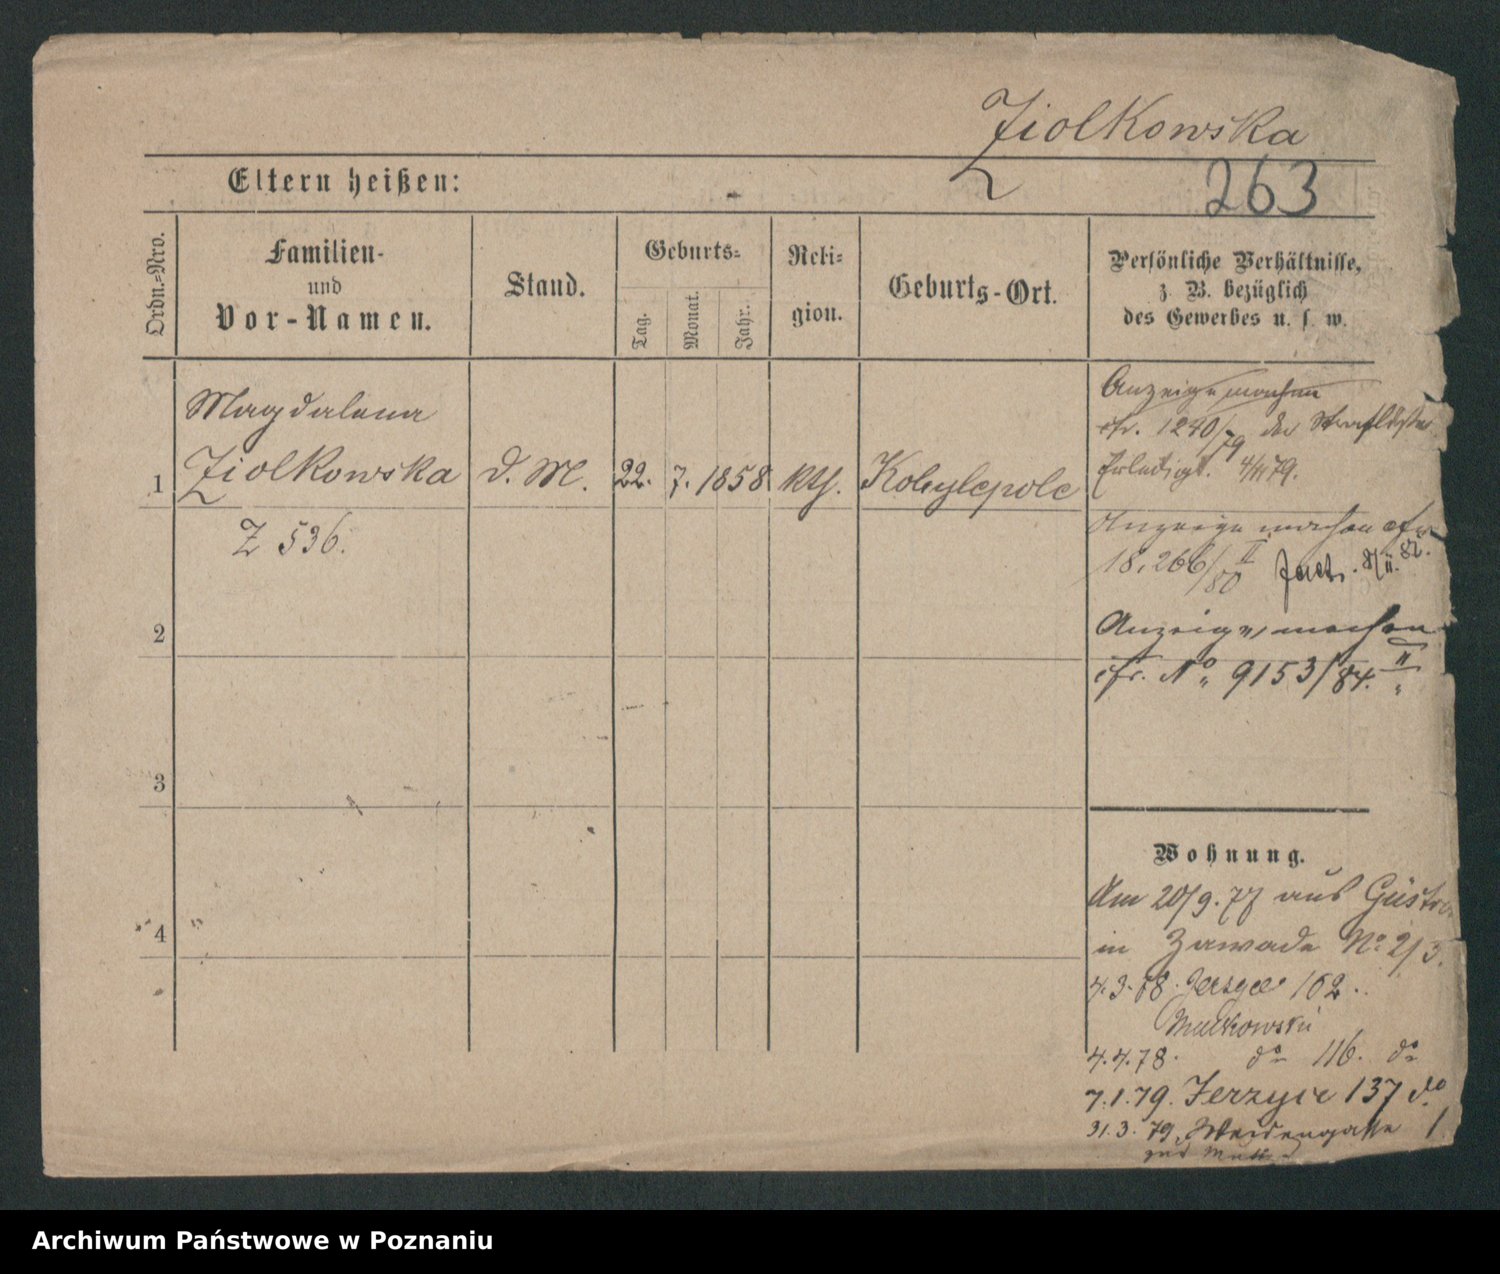 Ziolkowska
263
Eltern heißen:
Ordn.-Nro.
Familien-
und
Vor-Namen.
Stand.
Geburts-
Tag.
Monat.
Jahr.
Reli-
gion.
Geburts-Ort.
Persönliche Verhältnisse,
z. B. bezüglich
des Gewerbes u. s. w.
Magdalena
1 Ziolkowska d. M. 22. 7. 1858 kth. Kobylepole
Z 536.
2
3
4
Anzeige machen
cfr. 1240/79 der
Erledigt. 4/11 79.
Anzeige machen cfr
18,266/80 II
Anzeige machen
cfr. No 9153/84. II
Wohnung.
Am 20/9. 77 aus Güstro
in Zawade No 2/3.
4.3.78. Jersyce 162.
4.4.78. do 116. do
7.1.79. Jerzyce 137 do
31.3.79. Weidengasse 1
Archiwum Państwowe w Poznaniu